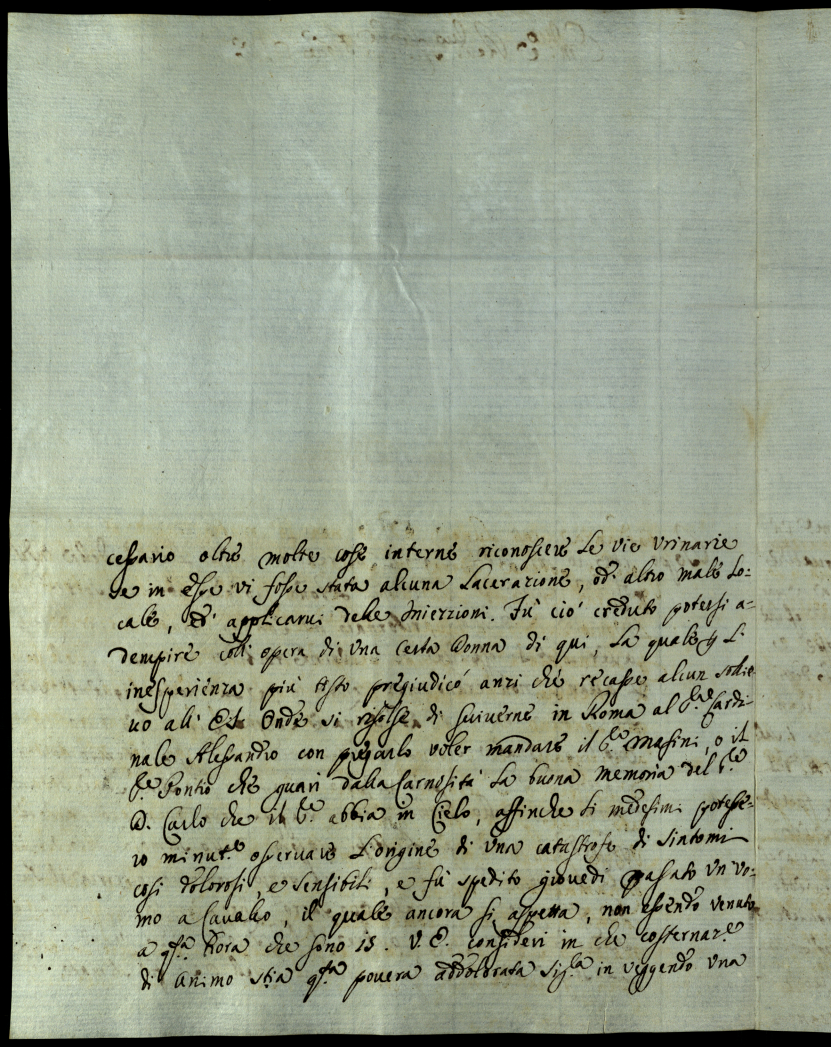 cessario oltre molte cose interne riconoscere Le vie Vrinarie
se in esse vi fosse stata alcuna Lacerazione, od altro male Lo=
cale, ed applicarui delle Inierzioni. Fù ciò creduto potersi a=
dempire coll' opera di Vna certa Donna di qui, La quale p L'
inesperienza più tosto pregiudicò anzi che recasse alcun sollie
uo all' Onde si risolse di scriuerne in Roma al Sig.e Cardi
nale Alessandro con pregarlo voler mandare il S.e Masini, o il
S.e Pontio che guarì dalla Carnosità La buona memoria del S.e
D. Carlo che il S.e abbia in Cielo, affinche li medesimi potesse=
ro minut.e osseruare L'origine di Vna catastrofe di sintomi
cosi dolorosi, e sensibili, e fù spedito giouedi passato Vn Vo=
mo a Cauallo, il quale ancora si aspetta, non essendo venuto
a qst.a Hora che sono 15. V. E. consideri in che costernaz.e
di Animo stia qst.a pouera addolorata Sig.la in veggendo Vna